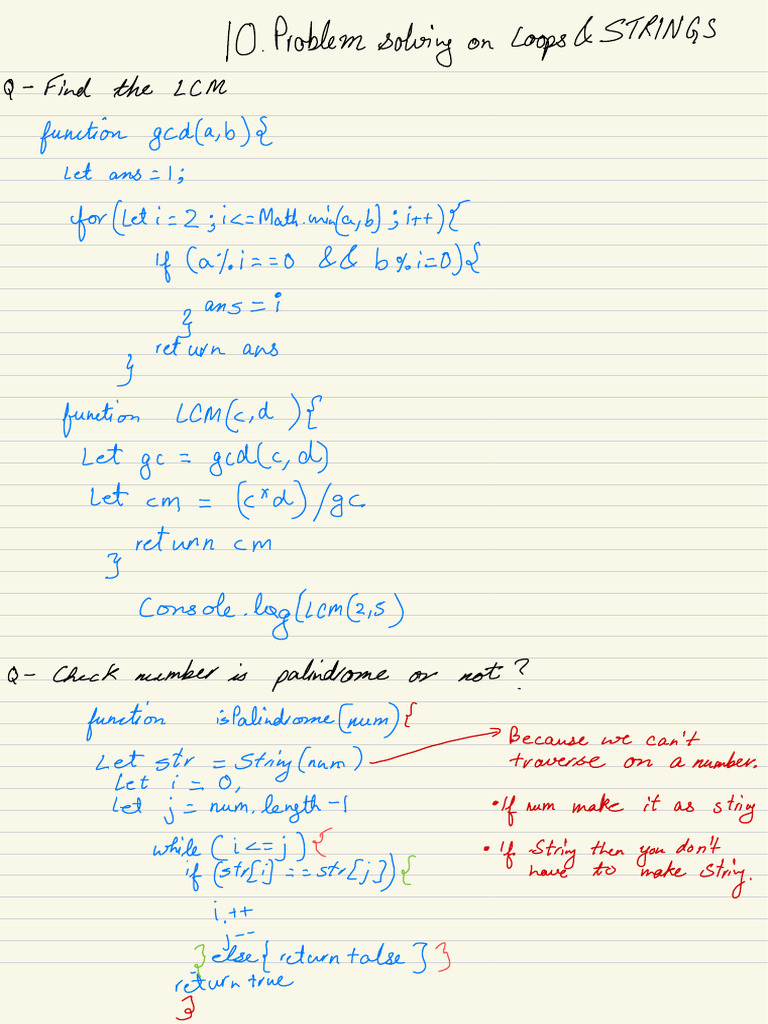 10. Problem solving on Loops & STRINGS
Q - Find the LCM
function gcd(a,b){
Let ans = 1;
for(Let i = 2 ; i<=Math.min(a,b) ; i++){
If (a%i==0 && b%i=0){
ans = i
}
return ans
}
function LCM(c,d ){
Let gc = gcd(c,d)
Let cm = (c*d)/gc.
return cm
}
Console.log(LCM(2,5)
Q - Check number is palindrome or not?
function isPalindrome(num){
Let str = String(num)
Because we can't
traverse on a number.
Let i = 0,
Let j = num.length-1
•If num make it as string
while (i<=j){
•If String then you don't
have to make String.
if (str[i]==str[j]){
i++
j--
} else{ return false } }
return true
}